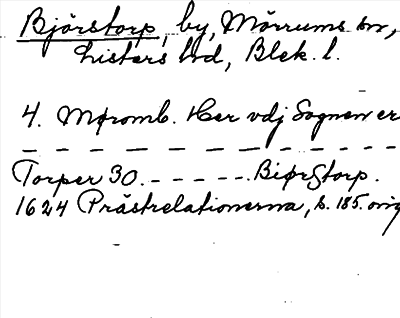 Bjärstorp, by, Mörrums sn,
Listers hd, Blek. l.
4. Møromb. Her vdj Sognen er
— — — — — — — — — — — —
Torper 30. - - - - - - Biørstorp.
1624 Prästrelationerna, s. 185. orig